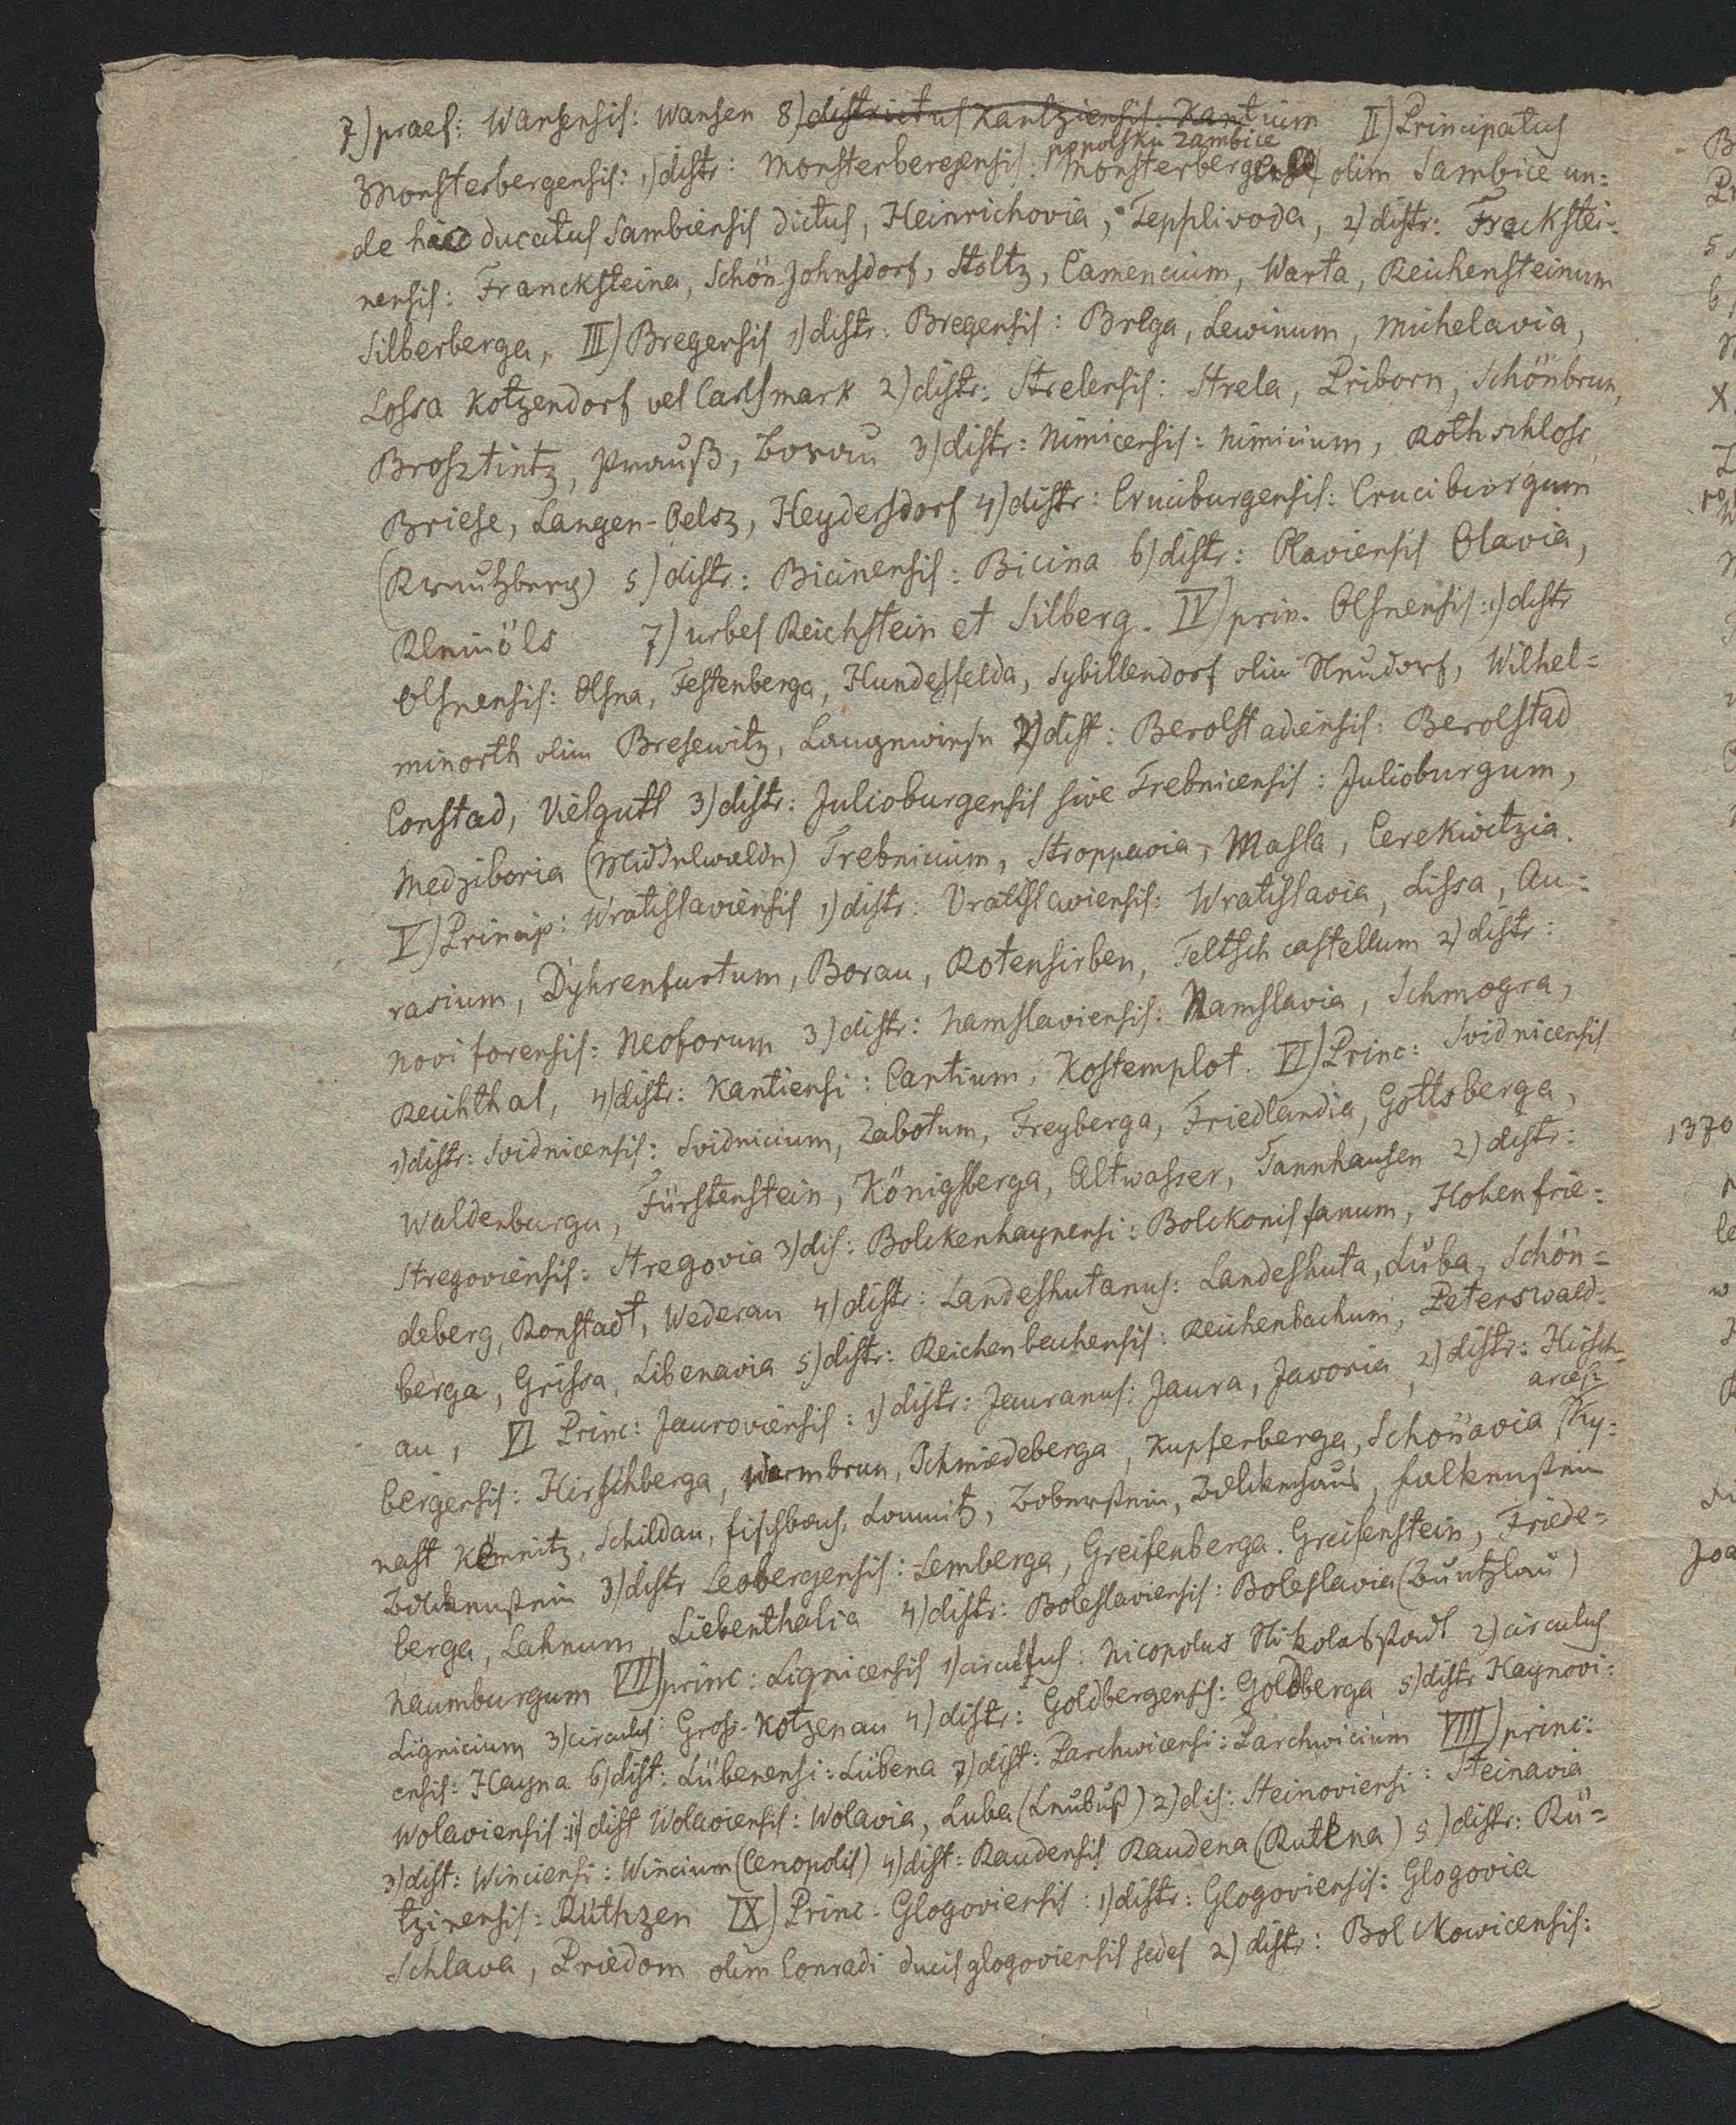 7) praef: Wansensis: Wansen 8) districtus Kantziensis: Kantium II) Principatus
popolsku Zambice
Monsterbergensis: 1) distr: Monsterbergensis: Monsterberga olim Sambice un=
de haec ducatus Sambiensis dictus, Heinrichovia, Tepplivoda, 2) distr: Franckstei=
nensis: Francksteina, Schön-Johnsdorf, Stoltz, Camencium, Warta, Reichensteinum
Silberberga, III) Bregensis 1) distr: Bregensis: Brega, Lewinum, Michelavia,
Lossa Kotzendorf vel Carlsmark 2) distr: Strelensis: Strela, Priborn, Schönbrun,
Brosztintz, Prauß, Borau 3) distr: Nimicensis: Nimicium, Rothschloss
Briese, Langen-Oelsz, Heydersdorf 4) distr: Cruciburgensis: Cruciburgum
(Kreutzberg) 5) distr: Bicinensis: Bicina 6) distr: Olaviensis Olavia,
Kleinöls 7) urbes Reichstein et Silberg. IV) prin. Olsnensis: 1) distr
Olsnensis: Olsna, Festenberga, Hundesfelda, Sybillendorf olim Neudorf, Wilhel=
minorth olim Bresewitz, Langewiese 2) dist: Berolstadiensis: Berolstad
Constad, Vielgutt 3) distr: Julioburgensis sive Trebnicensis: Julioburgum,
Medziboria (Mittelwalde) Trebnicium, Stroppavia, Masla, Cerekwitzia.
V) Princip: Wratislaviensis 1) distr: Vratislaviensis: Wratislavia, Lissa, Au=
rasium, Dyhrenfurtum, Borau, Rotensirben, Teltsch castellum 2) distr:
Noviforensis: Neoforum 3) distr: Namslaviensis: Namslavia, Schmogra,
Reichthal, 4) distr: Kantiensi: Cantium, Kostemplot. VI) Princ: Svidnicensis
1) distr: Svidnicensis: Svidnicium, Zabotum, Freyberga, Friedlandia, Gottsberga,
Waldenburga, Fürstenstein, Königsberga, Altwasser, Tannhausen 2) distr:
Stregoviensis: Stregovia 3) dis: Bolckenhaynensi: Bolckonis fanum, Hohenfrie=
deberg, Ronstadt, Wederau 4) distr: Landeshutanus: Landeshuta, Lüba, Schön=
berga, Grissa, Libenavia 5) distr: Reichenbachensis: Reichenbachum, Peterswald=
au, VI Princ: Jauroviensis: 1) distr: Jauranus: Jaura, Javoria, 2) distr: Hirsch=
arces:
bergensis: Hirschberga, Warmbrun, Schmiedeberga, Kupferberga, Schonavia, Ky=
nast Kemnitz, Schildau, Fischbach, Lomnitz, Boberstein, Bolckenhaus, Falkenstein
Bolckenstein 3) distr Leobergensis: Lemberga, Greifenberga. Greifenstein, Friede=
berga, Lahnum, Liebenthalia 4) distr: Boleslaviensis: Boleslavia (Buntzlau)
Naumburgum VII) princ: Lignicensis 1) circulus: Nicopolus Nikolasstadt 2) circulus
Lignicium 3) circulus: Gross-Kotzenau 4) distr: Goldbergensis: Goldberga 5) distr Haynovi=
ensis: Hayna 6) dist: Lübenensi: Lübena 7) dist: Parchwicensi: Parchwicium VIII) princ:
Wolaviensis: 1) dist Wolaviensis: Wolavia, Luba (Leubuß) 2) dis: Steinoviensi: Steinavia
3) dist: Winciensi: Wincium (Cenopolis) 4) dist: Raudensis Raudena (Rutkna) 5) distr: Rü=
tzinensis: Rüthzen IX) Princ: Glogoviensis: 1) distr: Glogoviensis: Glogovia
Schlava, Priedom olim Conradi ducis glogoviensis sedes 2) distr: Bolckowicensis:
1370